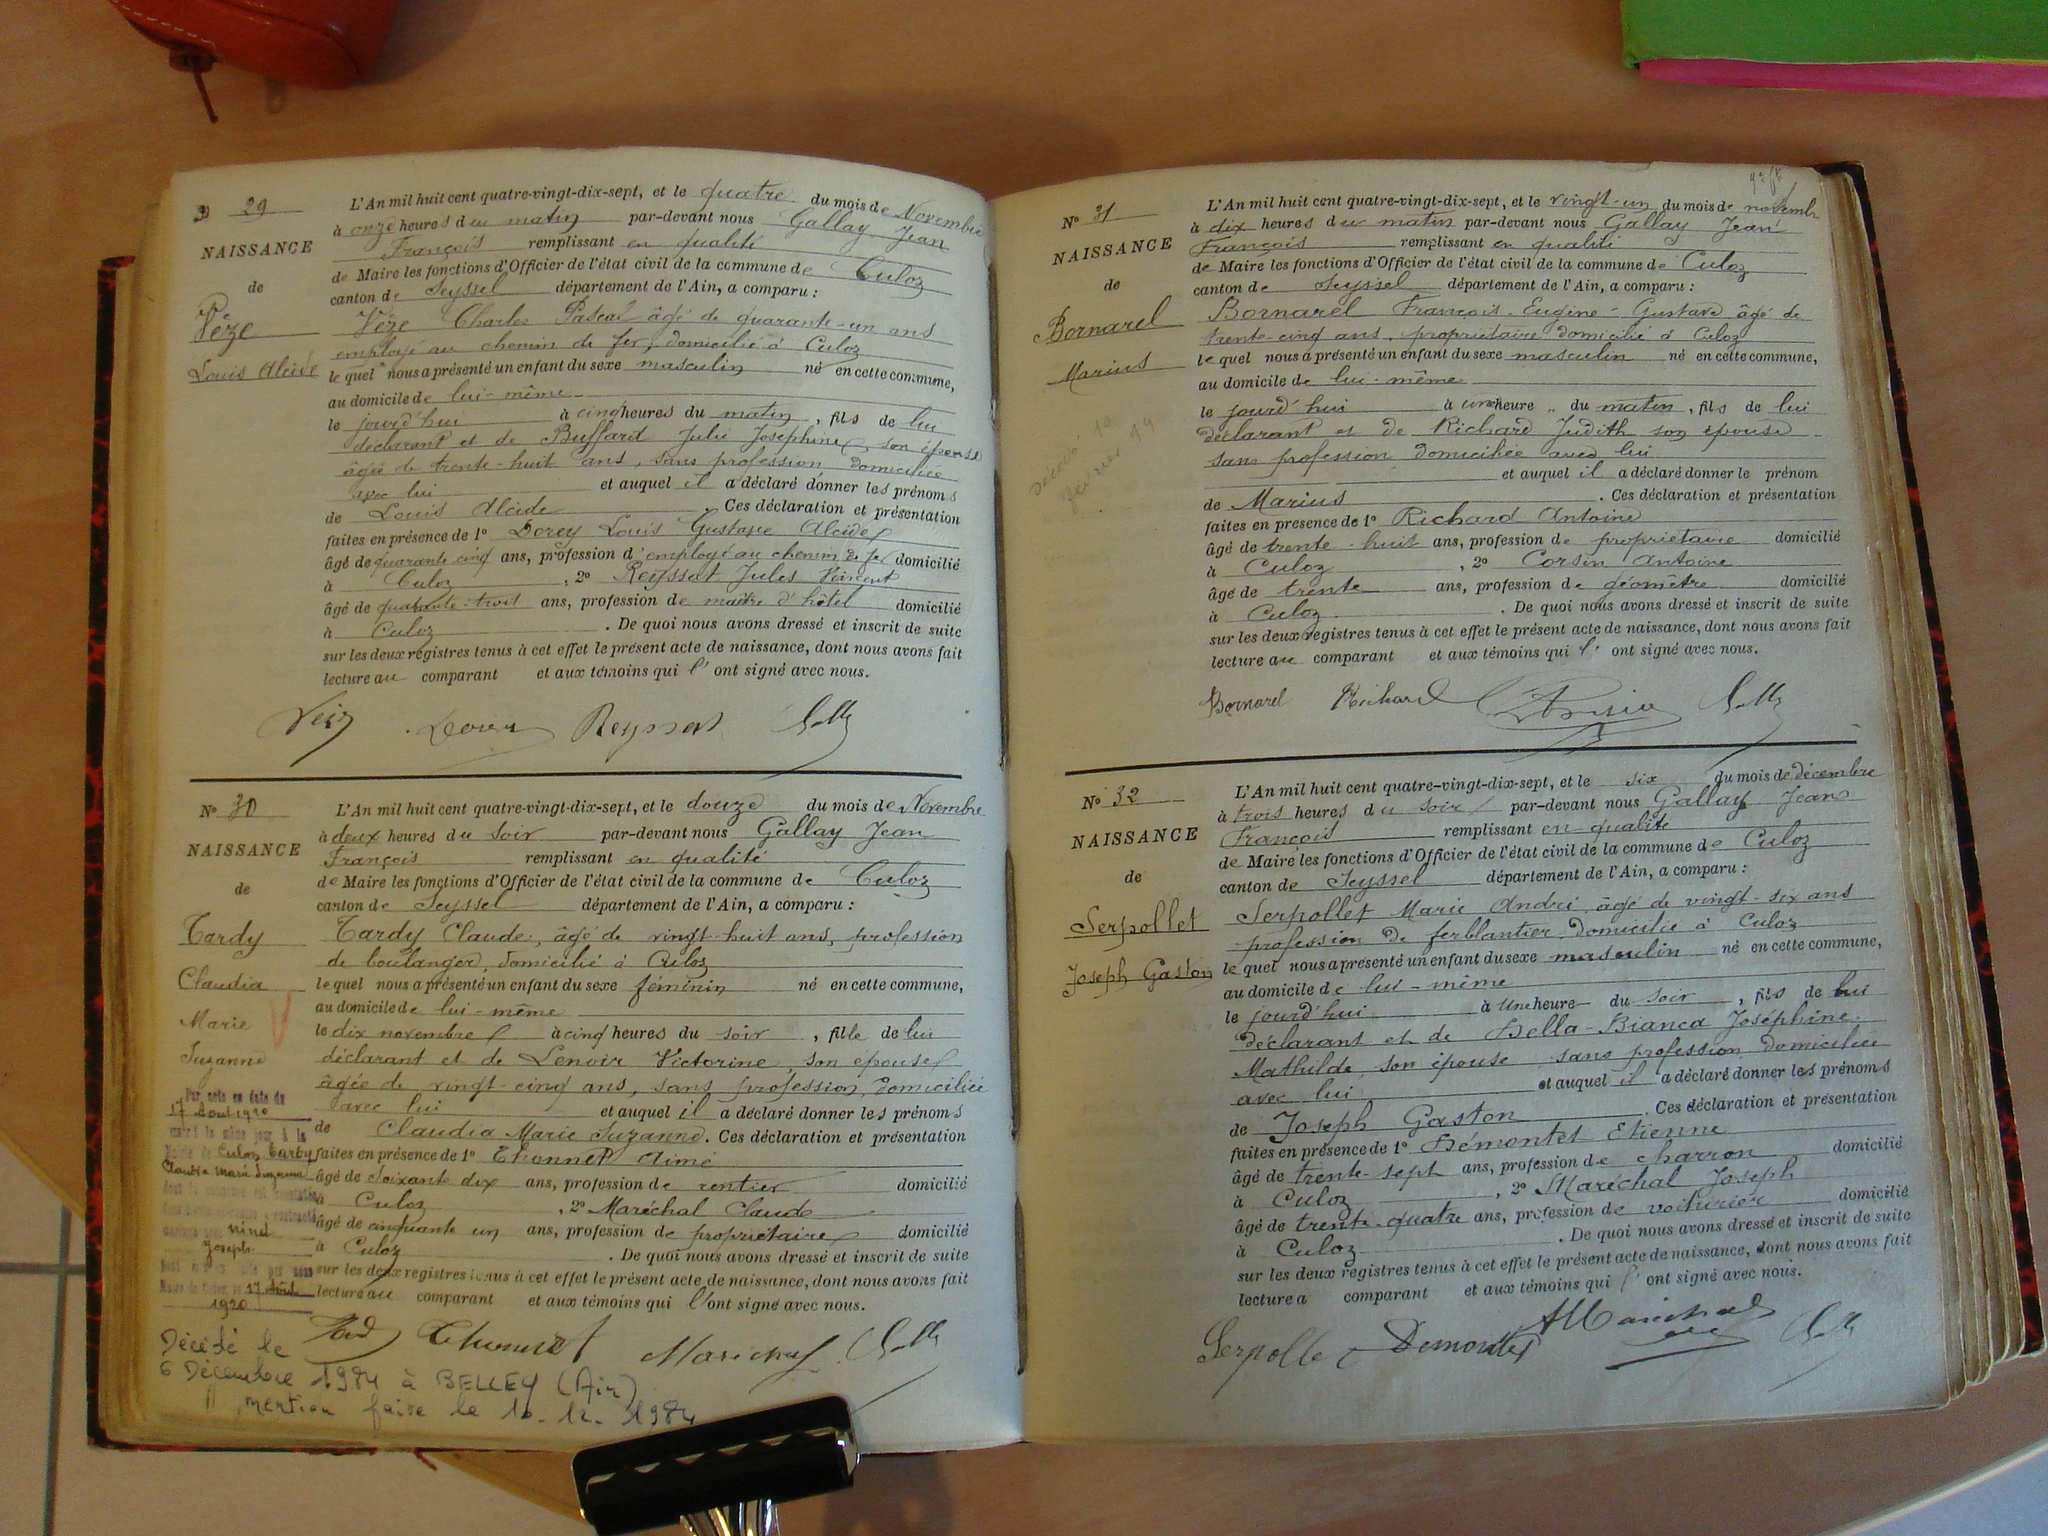 29
NAISSANCE
de
Vèze
Louis Alcide
L'An mil huit cent quatre-vingt-dix-sept, et le quatre du mois de Novembre
à onze heures du matin par-devant nous Gallay Jean
François remplissant en qualité
de Maire les fonctions d'Officier de l'état civil de la commune de Culoz
canton de Seyssel département de l'Ain, a comparu :
Vèze Charles Pascal âgé de quarante-un ans
employé au chemin de fer, domicilié à Culoz
le quel nous a présenté un enfant du sexe masculin né en cette commune,
au domicile de lui-même
le jourd'hui à cinq heures du matin, fils de lui
déclarant et de Buffard Julie Joséphine, son épouse
âgée de trente-huit ans, sans profession domiciliée
avec lui et auquel il a déclaré donner les prénoms
de Louis Alcide. Ces déclaration et présentation
faites en présence de 1º Dorey Louis Gustave Alcide
âgé de quarante cinq ans, profession d'employé au chemin de fer domicilié
à Culoz, 2º Reyssat Jules Vincent
âgé de quarante-trois ans, profession de maître d'hôtel domicilié
à Culoz. De quoi nous avons dressé et inscrit de suite
sur les deux registres tenus à cet effet le présent acte de naissance, dont nous avons fait
lecture au comparant et aux témoins qui l'ont signé avec nous.
Reyssat
Nº 30
NAISSANCE
de
Tardy
Claudia
Marie
Suzanne
Par acte en date du
17 Août 1920
Culoz Tardy
Claudia Marie Suzanne
Ninet
Joseph
17 Août
1920
L'An mil huit cent quatre-vingt-dix-sept, et le douze du mois de Novembre
à deux heures du soir par-devant nous Gallay Jean
François remplissant en qualité
de Maire les fonctions d'Officier de l'état civil de la commune de Culoz
canton de Seyssel département de l'Ain, a comparu :
Tardy Claude, âgé de vingt-huit ans, profession
de boulanger, domicilié à Culoz
le quel nous a présenté un enfant du sexe féminin né en cette commune,
au domicile de lui-même
le dix novembre à cinq heures du soir, fille de lui
déclarant et de Lenoir Victorine, son épouse
âgée de vingt-cinq ans, sans profession, domiciliée
avec lui et auquel il a déclaré donner les prénoms
de Claudia Marie Suzanne. Ces déclaration et présentation
faites en présence de 1º Thonnet Aimé
âgé de Soixante dix ans, profession de rentier domicilié
à Culoz, 2º Maréchal Claude
âgé de cinquante un ans, profession de propriétaire domicilié
à Culoz. De quoi nous avons dressé et inscrit de suite
sur les deux registres tenus à cet effet le présent acte de naissance, dont nous avons fait
lecture au comparant et aux témoins qui l'ont signé avec nous.
Maréchal
Décédé le
6 Décembre 1984 à BELLEY (Ain)
mention faite le 10.12.1984
Nº 31
NAISSANCE
de
Bornarel
Marius
décédé 10
février 49
L'An mil huit cent quatre-vingt-dix-sept, et le vingt-un du mois de novembre
à dix heures du matin par-devant nous Gallay Jean
François remplissant en qualité
de Maire les fonctions d'Officier de l'état civil de la commune de Culoz
canton de Seyssel département de l'Ain, a comparu :
Bornarel François-Eugène-Gustave âgé de
trente-cinq ans, propriétaire domicilié à Culoz
le quel nous a présenté un enfant du sexe masculin né en cette commune,
au domicile de lui-même
le jourd'hui à une heure du matin, fils de lui
déclarant et de Richard Judith son épouse
sans profession domiciliée avec lui
et auquel il a déclaré donner le prénom
de Marius. Ces déclaration et présentation
faites en presence de 1º Richard Antoine
âgé de trente-huit ans, profession de propriétaire domicilié
à Culoz, 2º Corsin Antoine
âgé de trente ans, profession de géomètre domicilié
à Culoz. De quoi nous avons dressé et inscrit de suite
sur les deux registres tenus à cet effet le présent acte de naissance, dont nous avons fait
lecture au comparant et aux témoins qui l'ont signé avec nous.
Bornarel Richard
Nº 32
NAISSANCE
de
Serpollet
Joseph Gaston
L'An mil huit cent quatre-vingt-dix-sept, et le six du mois de décembre
à trois heures du soir par-devant nous Gallay Jean
François remplissant en qualité
de Maire les fonctions d'Officier de l'état civil de la commune de Culoz
canton de Seyssel département de l'Ain, a comparu :
Serpollet Marie André, âgé de vingt-six ans
profession de ferblantier, domicilié à Culoz
le quel nous a présenté un enfant du sexe masculin né en cette commune,
au domicile de lui-même
le jourd'hui à une heure du soir, fils de lui
déclarant et de Della-Bianca Joséphine
Mathilde, son épouse sans profession domiciliée
avec lui et auquel il a déclaré donner les prénoms
de Joseph Gaston. Ces déclaration et présentation
faites en présence de 1º Démontet Etienne
âgé de trente-sept ans, profession de charron domicilié
à Culoz, 2º Maréchal Joseph
âgé de trente-quatre ans, profession de voiturier domicilié
à Culoz. De quoi nous avons dressé et inscrit de suite
sur les deux registres tenus à cet effet le présent acte de naissance, dont nous avons fait
lecture a comparant et aux témoins qui l'ont signé avec nous.
Serpollet Demontet Maréchal